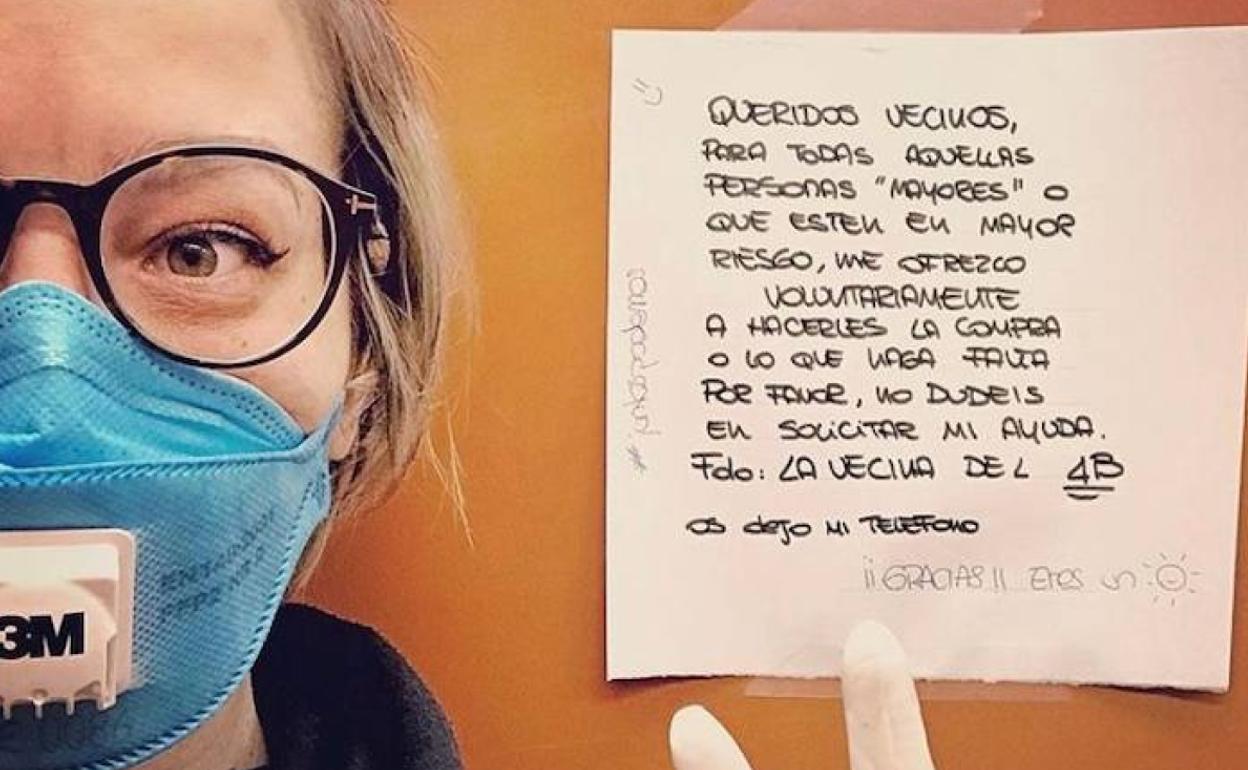 QUERIDOS VECINOS,
PARA TODAS AQUELLAS
PERSONAS "MAYORES" O
QUE ESTEN EN MAYOR
RIESGO, ME OFREZCO
VOLUNTARIAMENTE
A HACERLES LA COMPRA
O LO QUE HAGA FALTA
POR FAVOR, NO DUDEIS
EN SOLICITAR MI AYUDA.
Fdo: LA VECINA DEL 4B
OS dejo MI TELEFONO
¡¡GRACIAS!! Eres un
3M